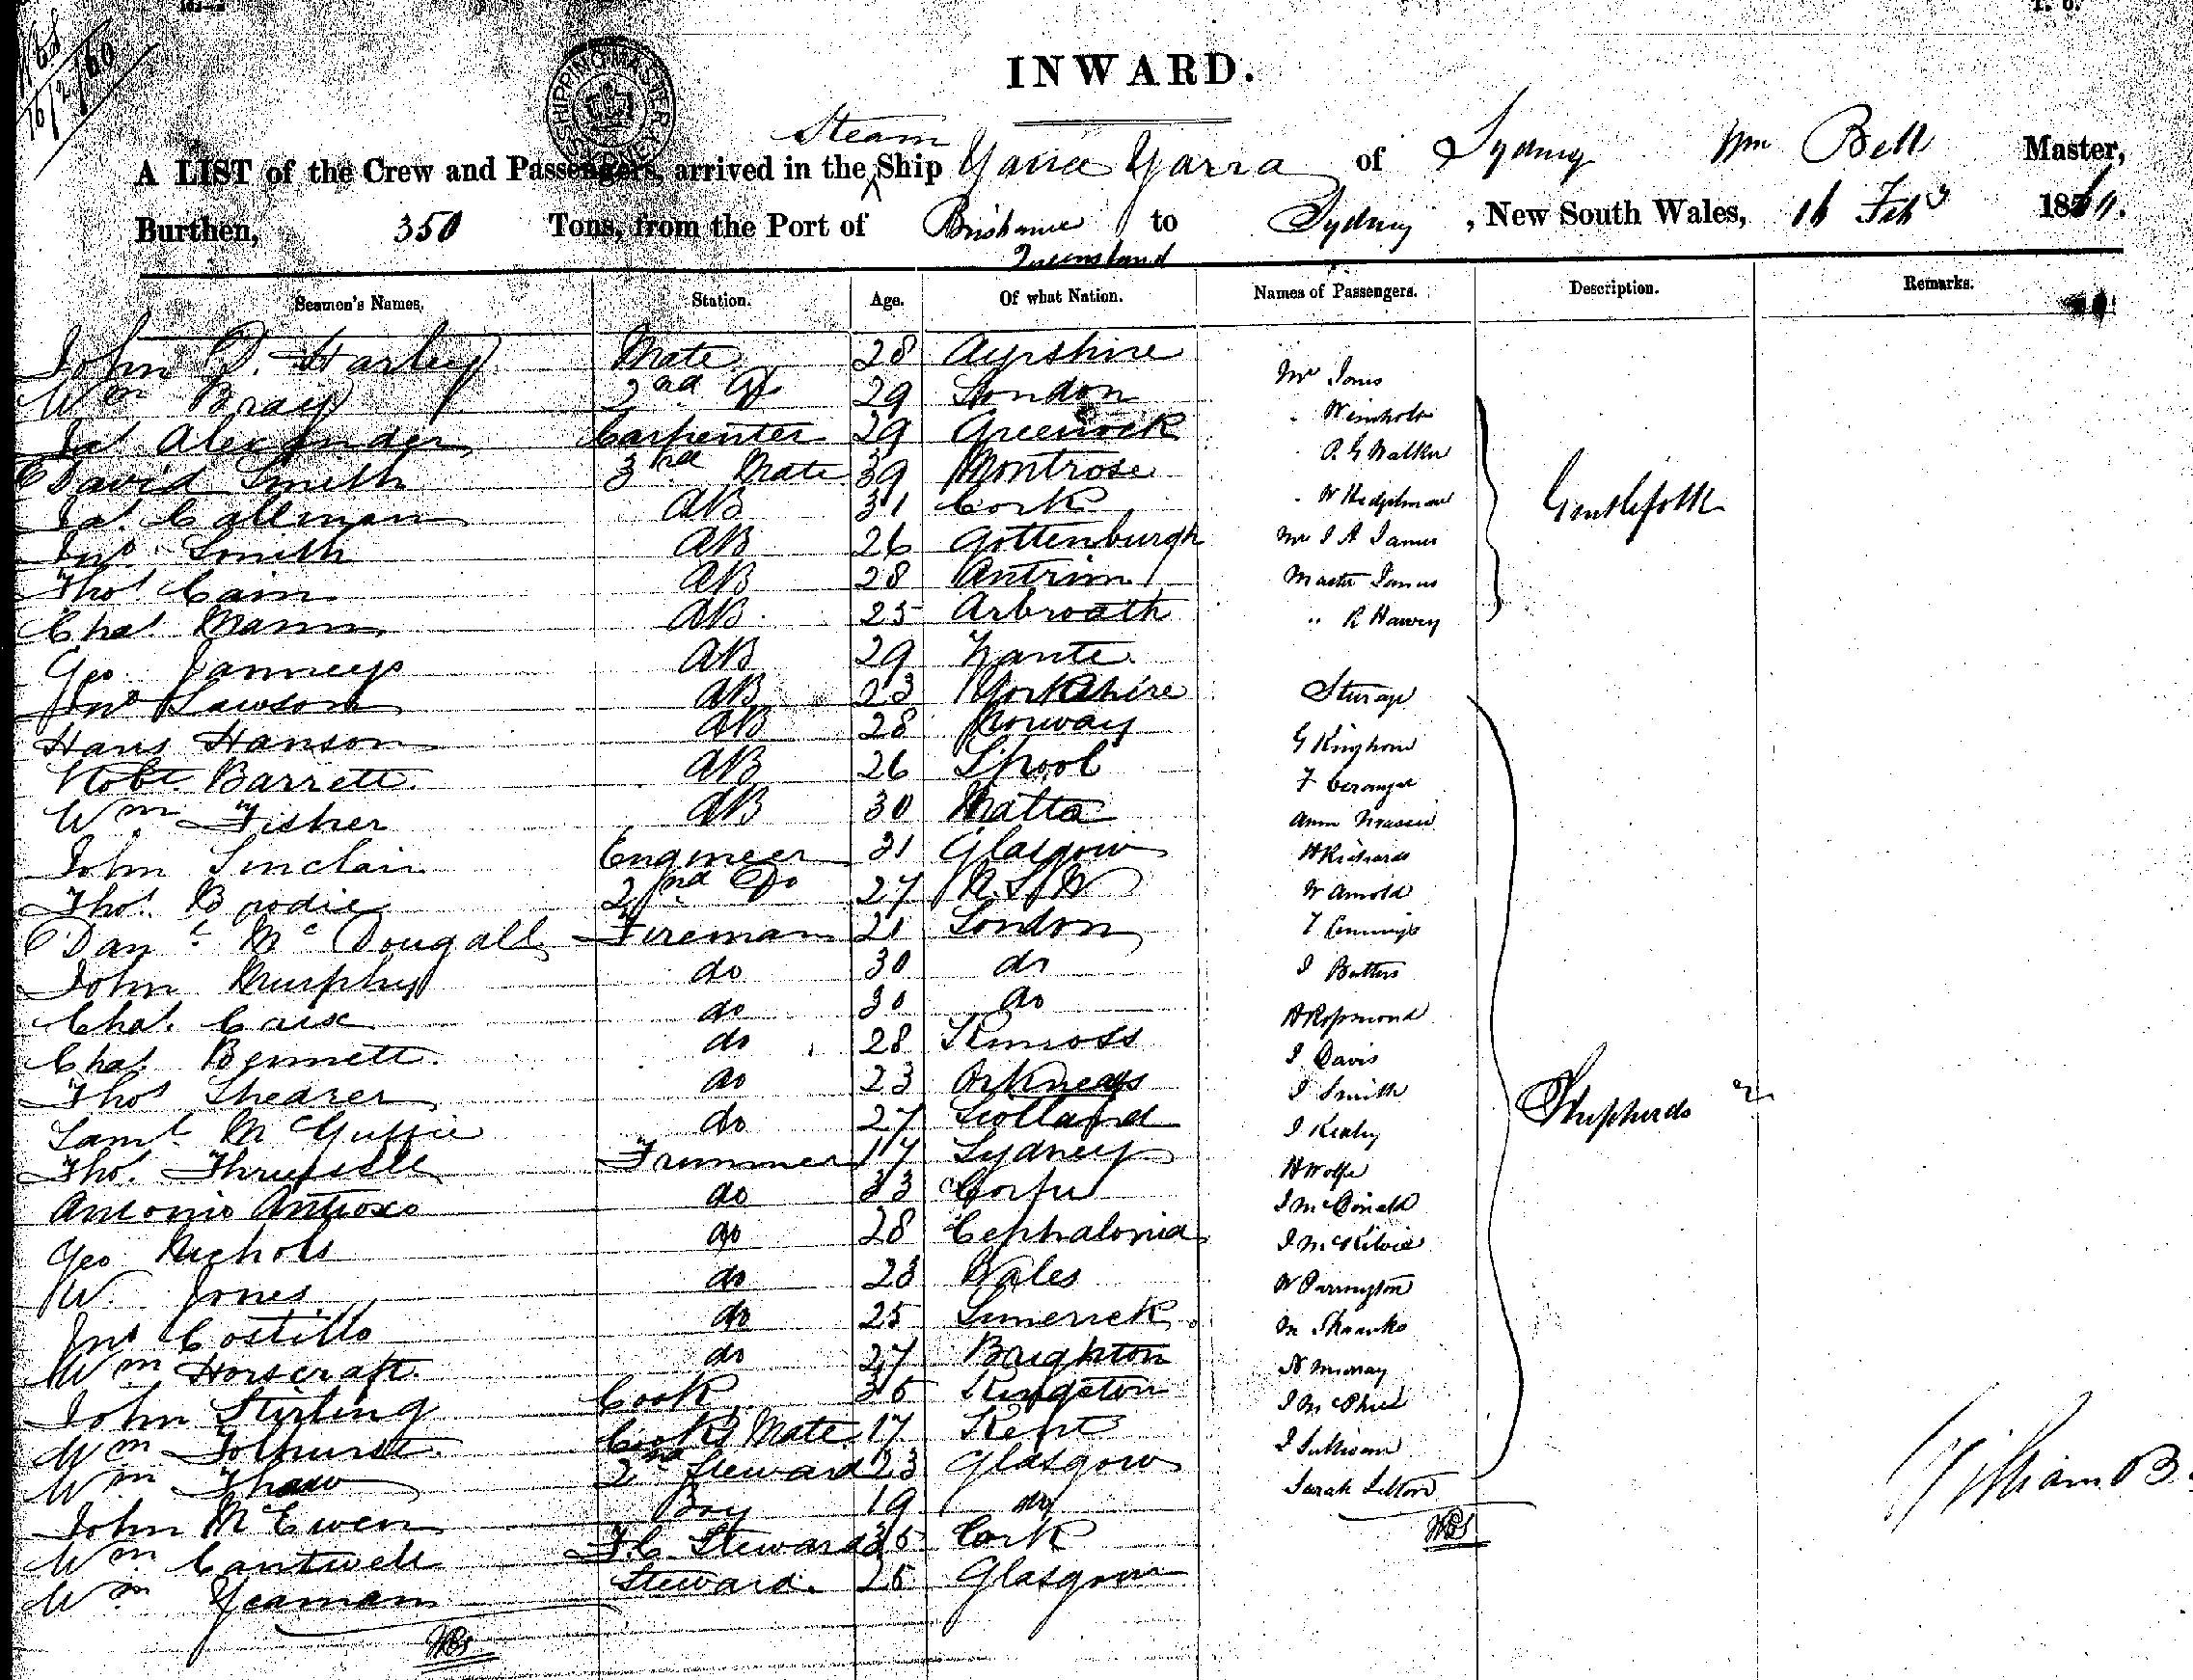 INWARD.
Steam
A LIST of the Crew and Passengers, arrived in the Ship Yarra Yarra of Sydney Wm Bell Master,
Burthen, 350 Tons, from the Port of Brisbane to Sydney, New South Wales, 16 Feby
Queensland
Seamen's Names, Station. Age. Of what Nation. Names of Passengers. Description. Remarks.
John D. Harley Mate 28 Ayrshire
Wm Bray 2nd Do 29 London
Jas Alexander Carpenter 29 Greenock
David Smith 3rd Mate 39 Montrose
Jas. Callman AB 31 Cork
Jno Smith AB 26 Gottenburgh
Thos Cain AB 28 Antrim
Chas. Mann AB 25 Arbroath
Geo. AB 29 Zante
Jno Lawson AB 23 Yorkshire
Hans Hanson AB 28 Norway
Robt. Barrett AB 26 Lpool
Wm Fisher AB 30 Malta
John Sinclair Engineer 31 Glasgow
Thos. Brodie 2nd Do 27 N.S.W
Danl McDougall Fireman 21 London
John Murphy do 30 do
Chas. do 30 do
Chas. Bennett do 28 Kinross
Thos Shearer do 23 Orkneys
Saml McGuffie do 27 Scotland
Thos. Trimmer 17 Sydney
Antonio do 33 Corfu
Geo Nichols do 28 Cephalonia
W. Jones do 23 Wales
Jno Costillo do 25 Limerick
Wm Horscraft do 27 Brighton
John Stirling Cook 35 Kingston
Wm Tolhurst Cooks Mate 17 Kent
Wm Thaw 2nd Steward 23 Glasgow
John McEwen Boy 19 do
Wm Cantwell F.C. Steward 35 Cork
Wm Yeaman Steward. 25 Glasgow
R G Walker
Gentlefolk
Master James
R Harvey
Steerage
G Kinghorn
H Richards
W Arnold
J Butters
J Davis
J Smith
Shepherds
H Wolfe
J McDonald
W Parrington
M Shanks
N Murray
J McPhiel
J Sullivan